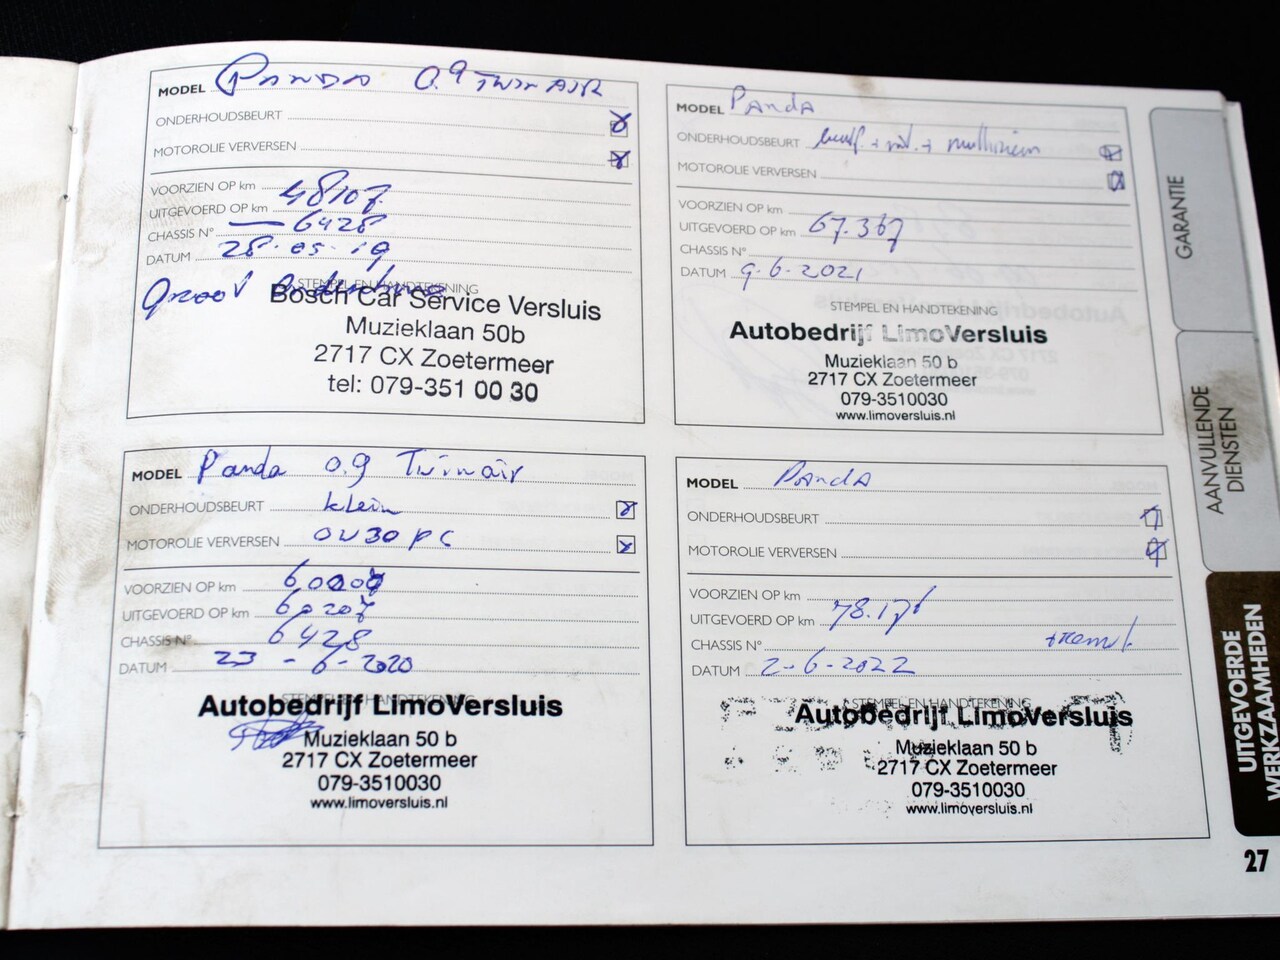 MODEL Panda 0.9 TwinAIR
ONDERHOUDSBEURT
MOTOROLIE VERVERSEN
VOORZIEN OP km 48107
UITGEVOERD OP km
CHASSIS N° — 6428
DATUM 28-05-19
STEMPEL EN HANDTEKENING
Groot Onderhoud
Bosch Car Service Versluis
Muzieklaan 50b
2717 CX Zoetermeer
tel: 079-351 00 30
MODEL Panda
ONDERHOUDSBEURT
MOTOROLIE VERVERSEN
VOORZIEN OP km
UITGEVOERD OP km 67.367
CHASSIS N°
DATUM 9-6-2021
STEMPEL EN HANDTEKENING
Autobedrijf LimoVersluis
Muzieklaan 50 b
2717 CX Zoetermeer
079-3510030
www.limoversluis.nl
MODEL Panda 0.9 Twinair
ONDERHOUDSBEURT klein
MOTOROLIE VERVERSEN 0W30
VOORZIEN OP km
UITGEVOERD OP km 60207
CHASSIS N° 6428
DATUM 23-6-2020
STEMPEL EN HANDTEKENING
Autobedrijf LimoVersluis
Muzieklaan 50 b
2717 CX Zoetermeer
079-3510030
www.limoversluis.nl
MODEL Panda
ONDERHOUDSBEURT
MOTOROLIE VERVERSEN
VOORZIEN OP km
UITGEVOERD OP km
CHASSIS N°
DATUM 2-6-2022
STEMPEL EN HANDTEKENING
Autobedrijf LimoVersluis
Muzieklaan 50 b
2717 CX Zoetermeer
079-3510030
www.limoversluis.nl
GARANTIE
AANVULLENDE
DIENSTEN
UITGEVOERDE
WERKZAAMHEDEN
27